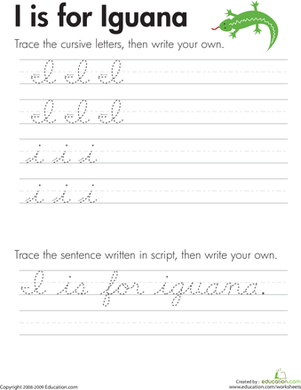 I is for Iguana
Trace the cursive letters, then write your own.
I I I
I I I
i i i
i i i
Trace the sentence written in script, then write your own.
I is for iguana.
Copyright 2008-2009 Education.com
Created by: education.com
www.education.com/worksheets